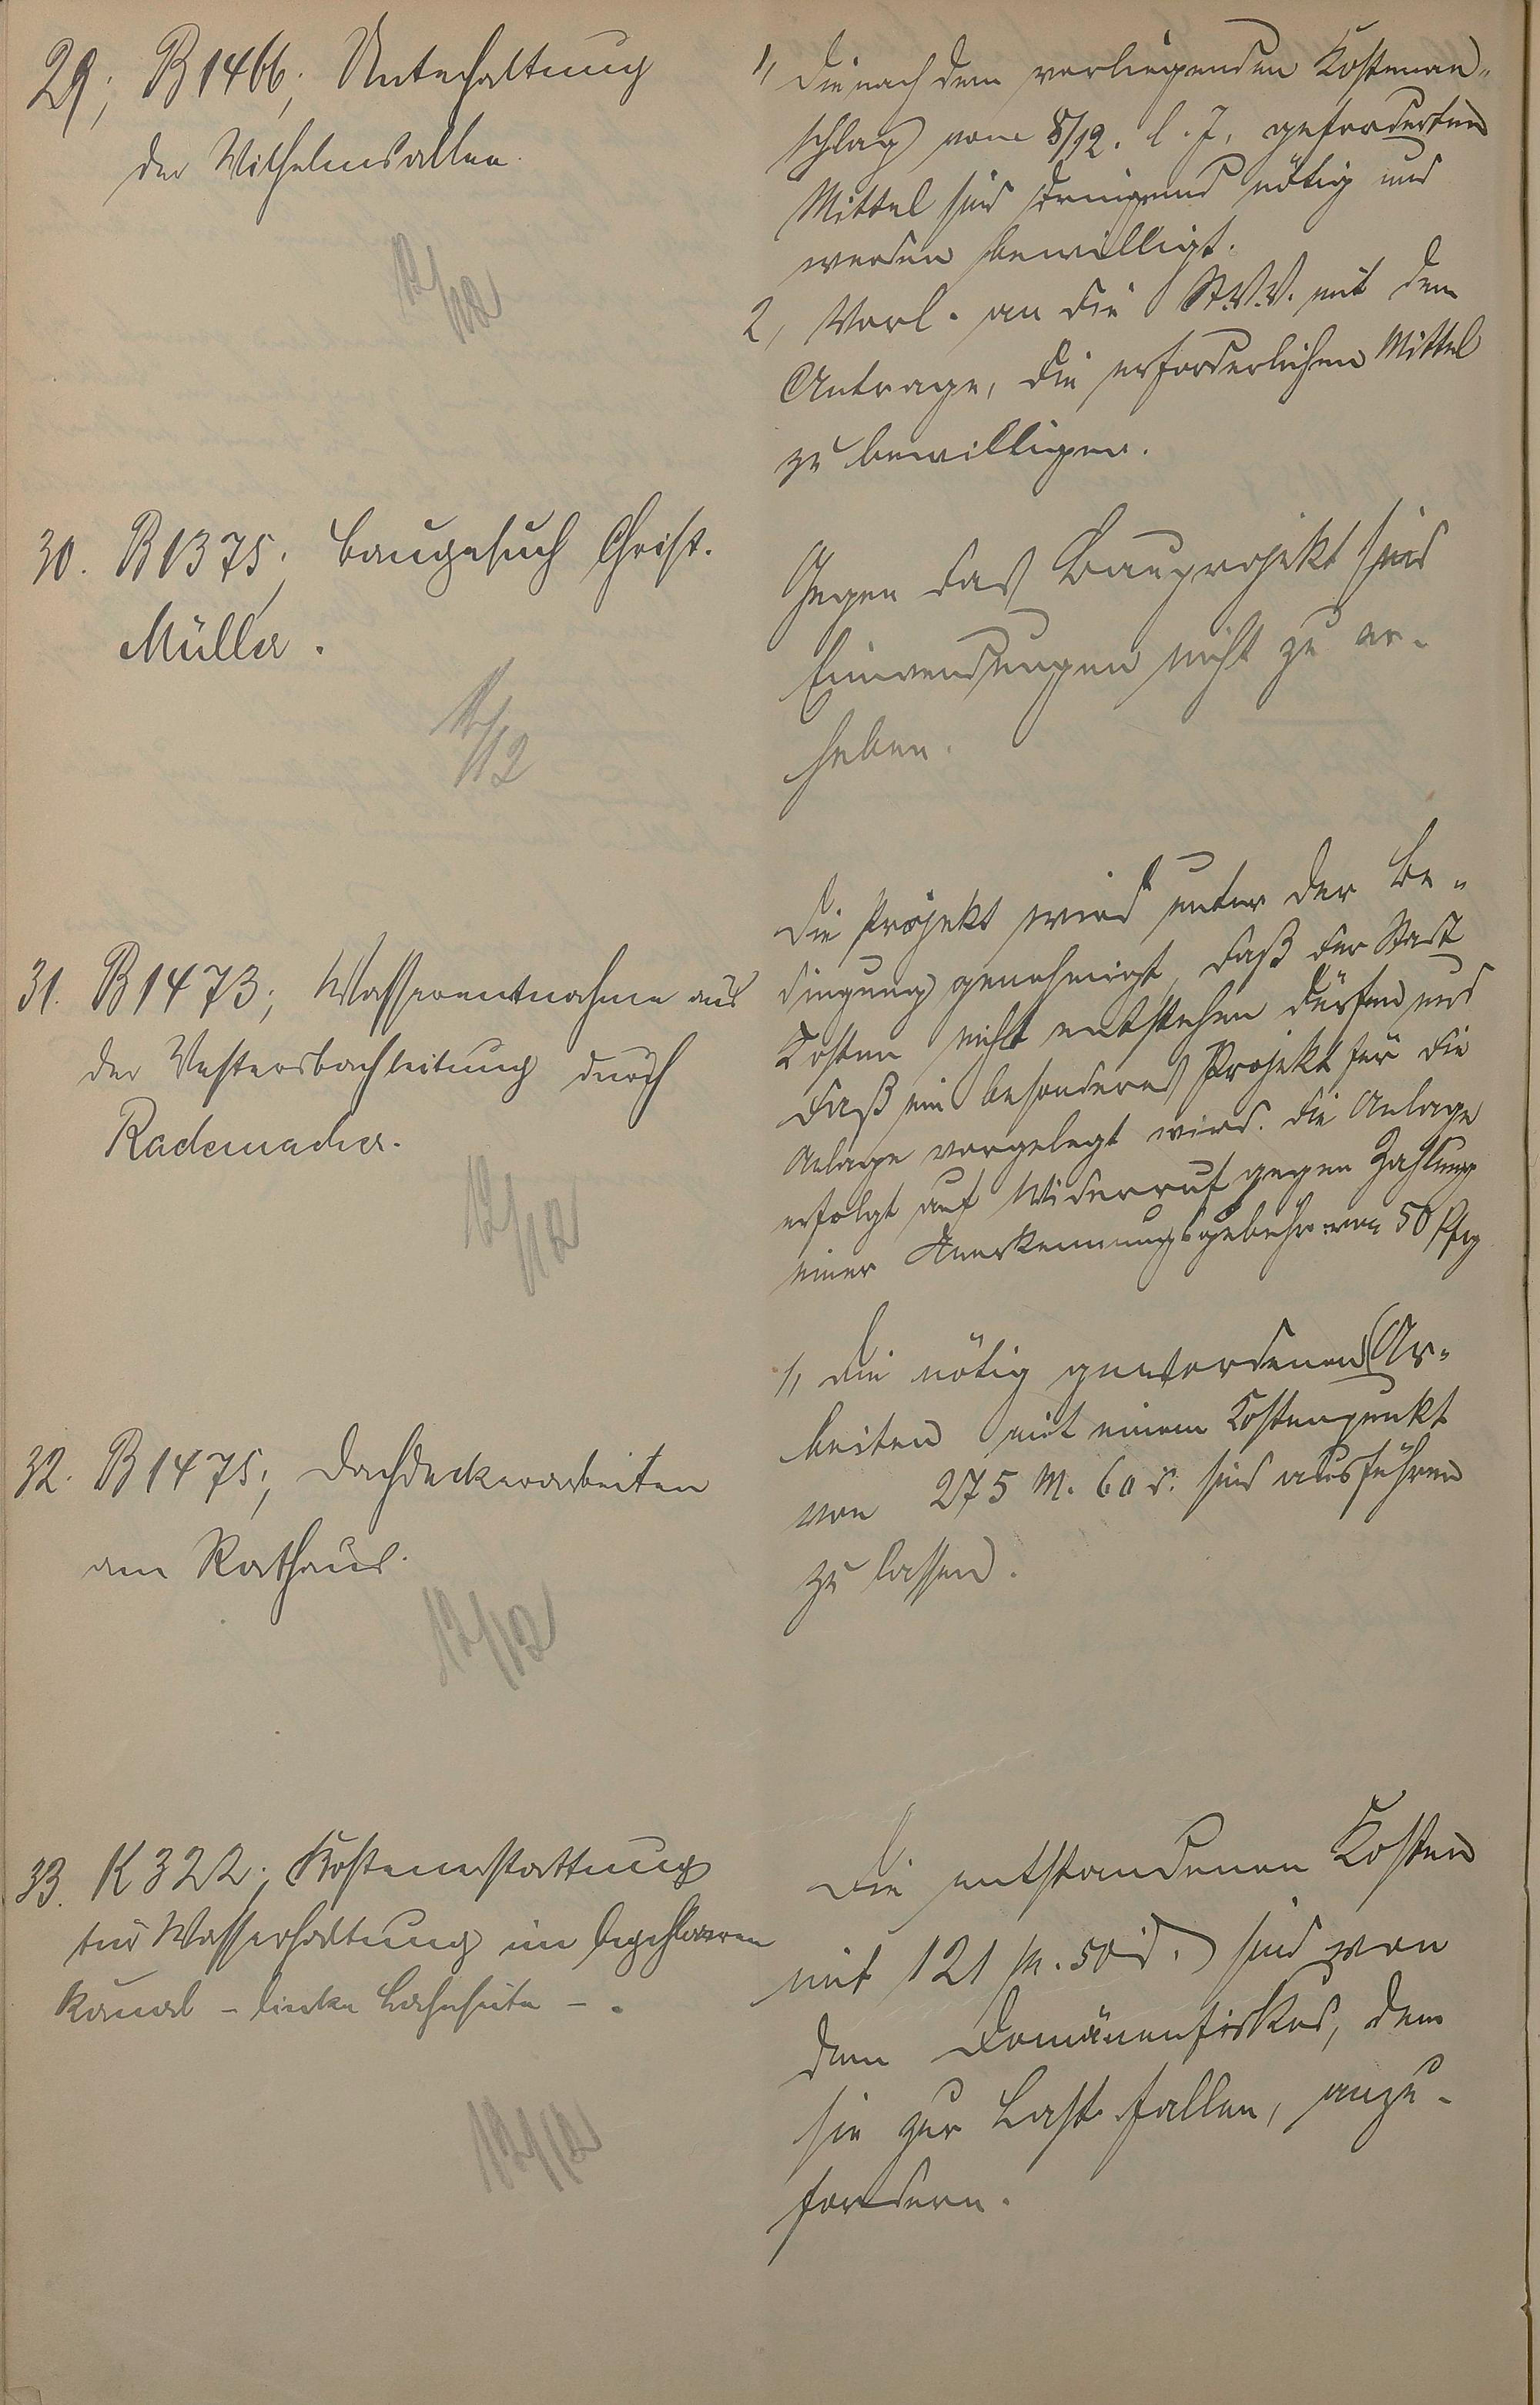 29; B 1466; Unterhaltung
der Wilhelmsallee.
12/12
1, Die nach dem vorliegenden Kostenan-
schlag vom 8/12. l. J. geforderten
Mittel sind dringend nötig und
werden bewilligt.
2, Vorl. an die St.V.V. mit dem
Antrage, die erforderlichen Mittel
zu bewilligen.
30. B 1375; Baugesuch Christ.
Müller.
12/12
Gegen das Bauprojekt sind
Einwendungen nicht zu er-
heben.
31. B 1473; Wasserentnahme aus
der Vestersbachleitung durch
Rademacher.
12/12
Die Projekt wird unter der Be-
dingung genehmigt, daß der Stadt
Kosten nicht entstehen dürfen und
daß ein besonderes Projekt für die
Anlage vorgelegt wird. Die Anlage
erfolgt auf Widerruf gegen Zahlung
einer Anerkennungsgebühr von 50 Pfg
32. B 1475; Dachdeckerarbeiten
am Rathaus.
12/12
1, Die nötig gewordenen Ar-
beiten mit einem Kostenpunkt
von 275 M. 60 d. sind ausführen
zu lassen.
33. K 322; Kostenerstattung
für Wasserhaltung im
Kanal - linke Lahnseite -.
12/12
Die entstandenen Kosten
mit 121 M. 50 d. sind von
dem Domänenfiskus, dem
sie zur Last fallen, anzu-
fordern.